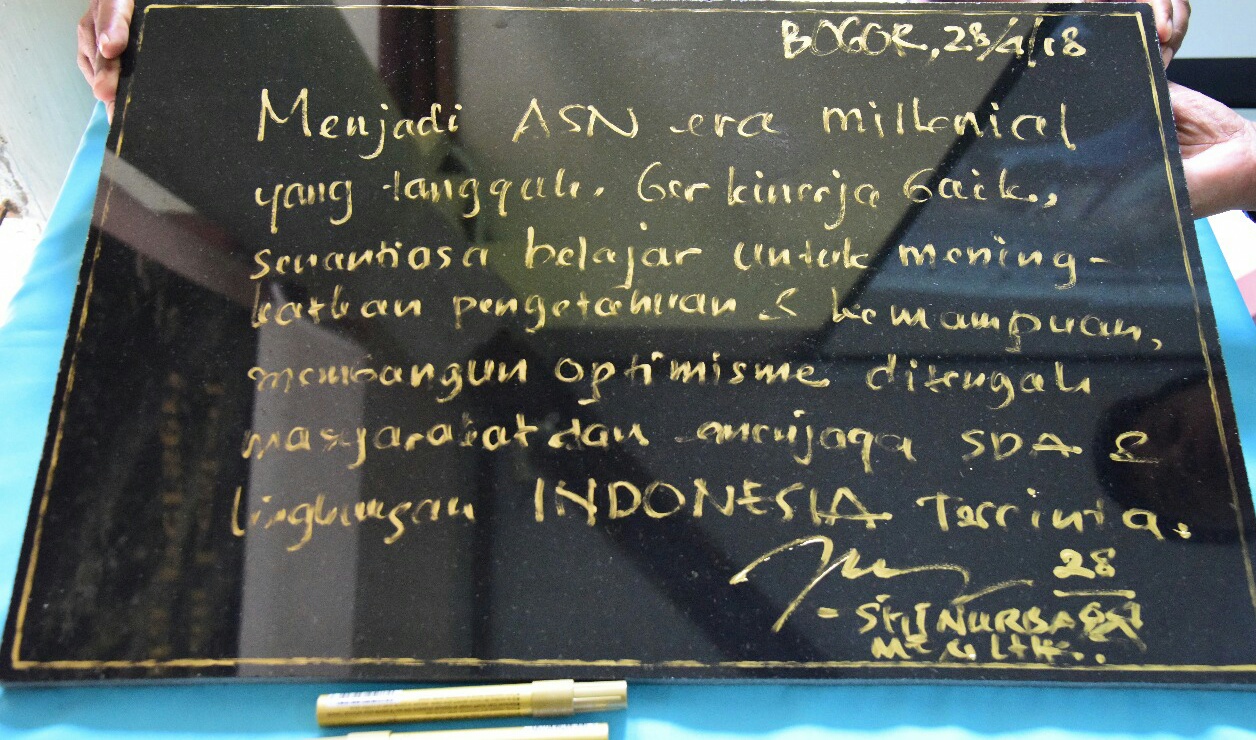 BOGOR, 28/4/18
Menjadi ASN era millenial
yang tangguh. berkinerja baik,
senantiosa belajar untuk mening-
katkan pengetahuan & kemampuan,
membangun optimisme ditengah
masyarakat dan menjaga SDA &
lingkungan INDONESIA Tercinta.
28
- SITI NURBAYA